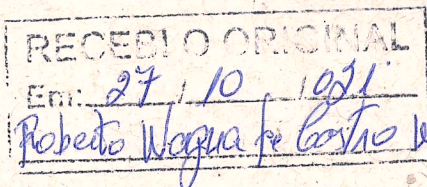 RECEBI O ORIGINAL
Em: 27 / 10 / 021
Roberto Wagna de Castro